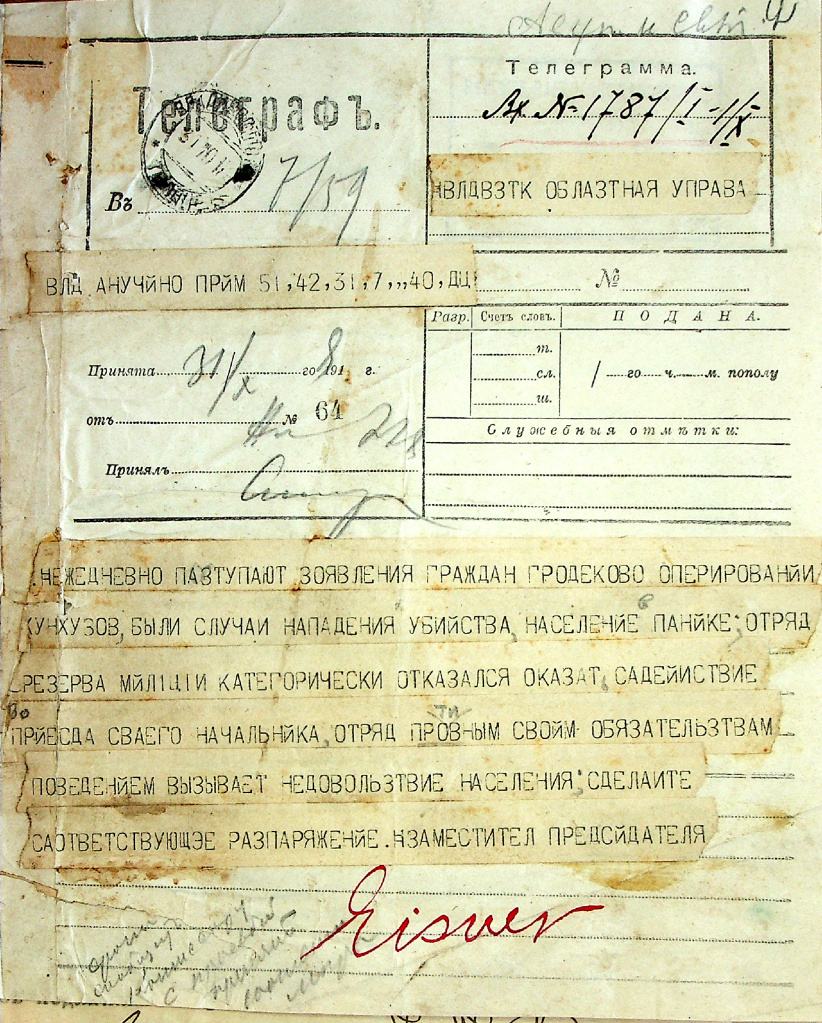 Телеграмма.
Телеграфъ.
Вх. № 1787/I-1/X
Въ
7/59
НВЛДВЗТК ОБЛАЗТНАЯ УПРАВА
ВЛД АНУЧЙНО ПРЙМ 51,42,31,7,,,40,ДЦ
№
Разр. Счетъ словъ. ПОДАНА.
Принята 31/X го 1918 г.
т.
сл. / го ч. м. пополу
ш.
отъ № 64
Служебныя отмѣтки:
Принялъ
.НЕЖЕДНЕВНО ПАЗТУПАЮТ ЗОЯВЛЕНИЯ ГРАЖДАН ГРОДЕКОВО ОПЕРИРОВАНЙИ
ХУНХУЗОВ, БЫЛИ СЛУЧАИ НАПАДЕНИЯ УБИЙСТВА, НАСЕЛЕНЙЕ в ПАНЙКЕ: ОТРЯД
РЕЗЕРВА МЙЛІЦІИ КАТЕГОРИЧЕСКИ ОТКАЗАЛСЯ ОКАЗАТ, САДЕЙИСТВИЕ
во
ПРЙЕСДА СВАЕГО НАЧАЛЬНЙКА, ОТРЯД ПРОВНЫМ СВОЙМ ОБЯЗАТЕЛЬЗТВАМ
ти
ПОВЕДЕНЙЕМ ВЫЗЫВАЕТ НЕДОВОЛЬЗТВИЕ НАСЕЛЕНИЯ: СДЕЛАИТЕ
САОТВЕТСТВУЮЩЭЕ РАЗПАРЯЖЕНЙЕ. НЗАМЕСТИТЕЛ ПРЕДСЙДАТЕЛЯ
Eisner